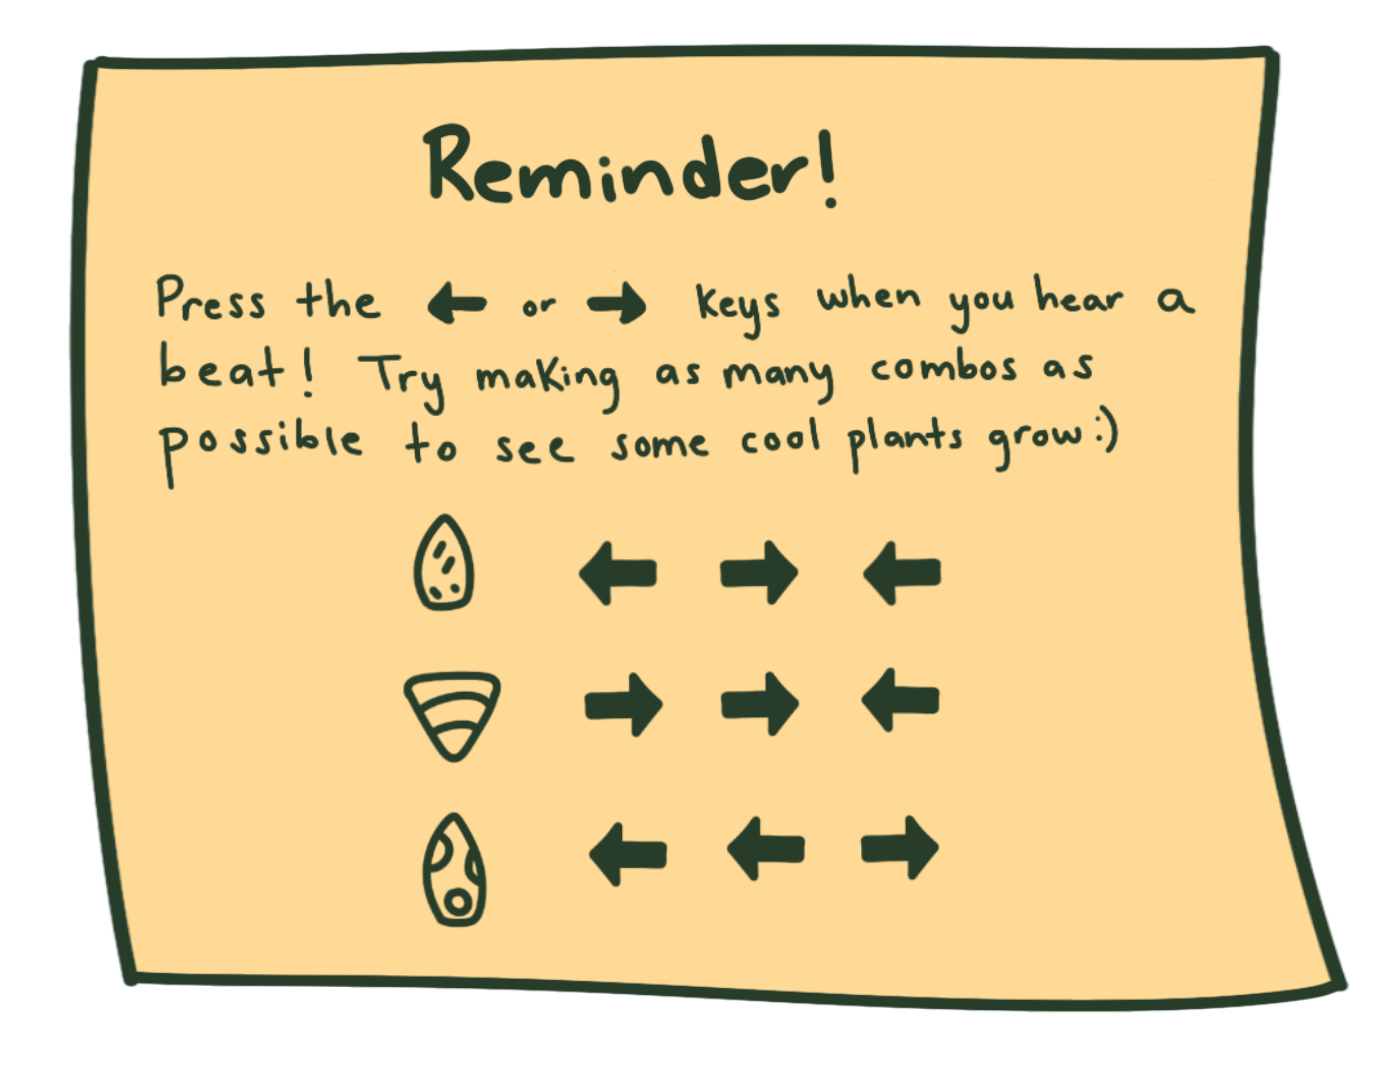 Reminder!
Press the ← or → keys when you hear a
beat! Try making as many combos as
possible to see some cool plants grow :)
← → ←
→ → ←
← ← →